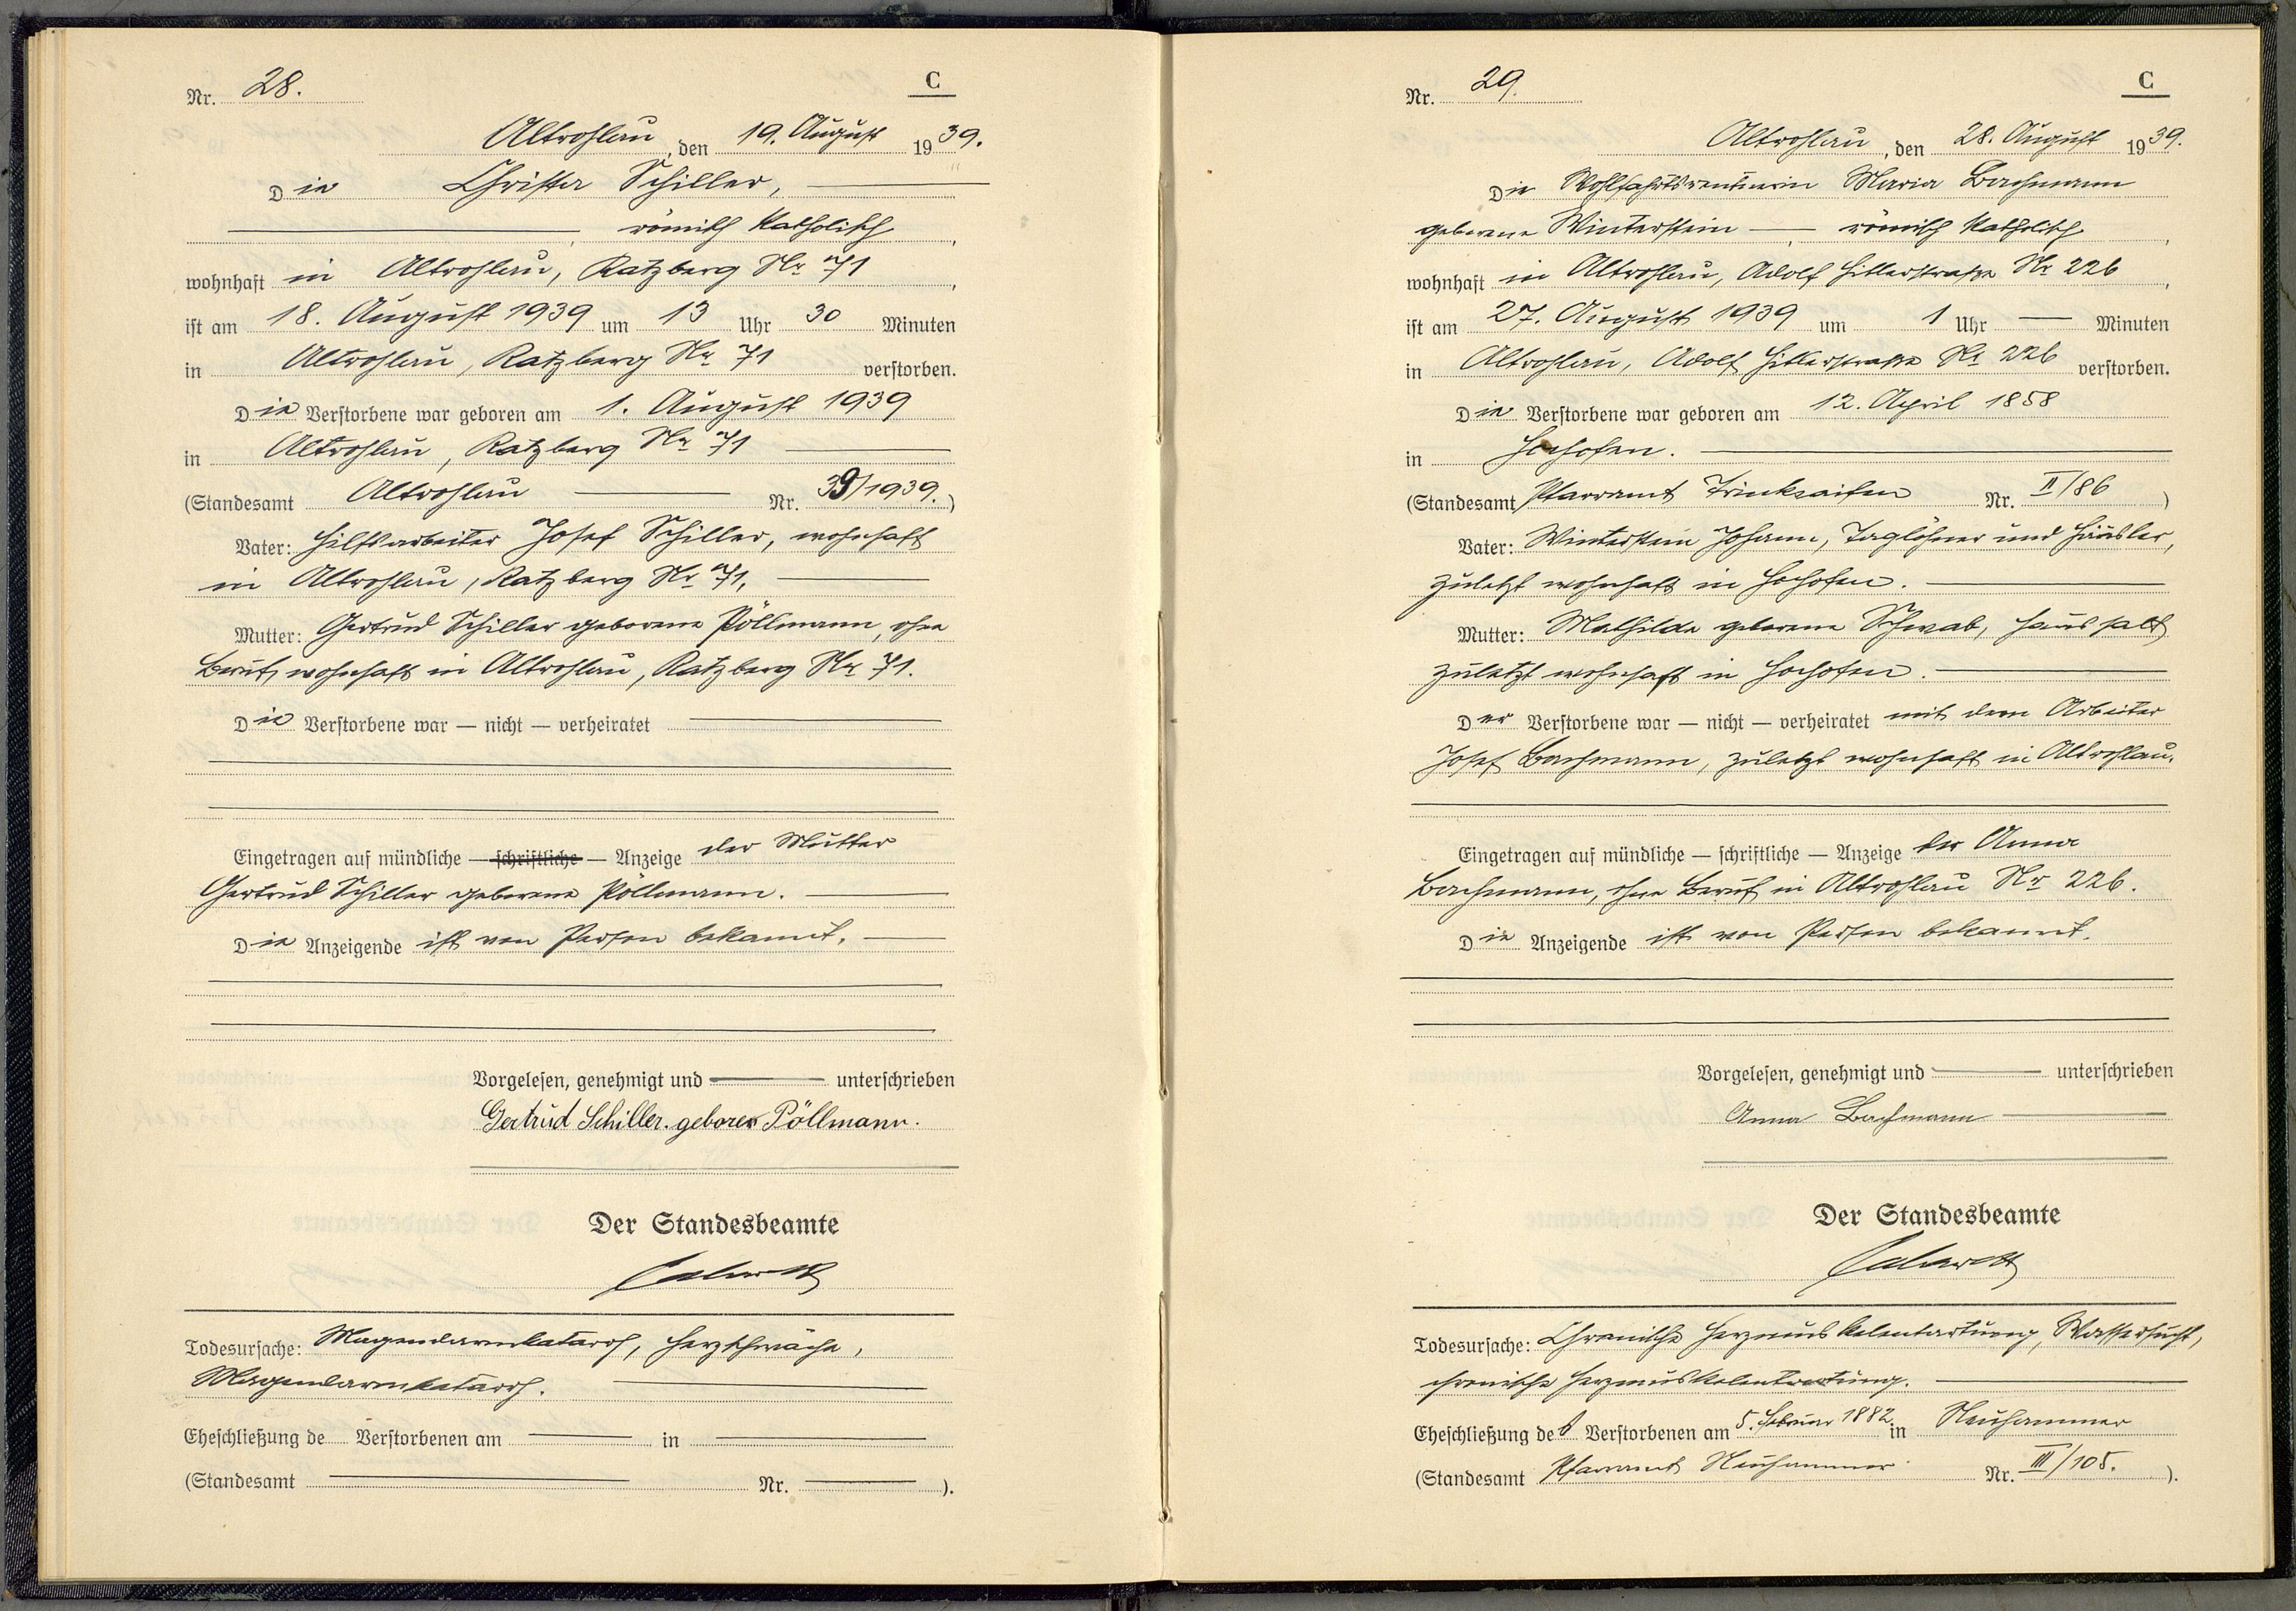 Nr. 28.
C
Altrohlau, den 19. August 1939.
Die Christa Schiller,
römisch Katholisch,
wohnhaft in Altrohlau, Ratzberg Nr 71,
ist am 18. August 1939 um 13 Uhr 30 Minuten
in Altrohlau, Ratzberg Nr 71 verstorben.
Die Verstorbene war geboren am 1. August 1939
in Altrohlau, Ratzberg Nr 71
(Standesamt Altrohlau Nr. 39/1939.)
Vater: Hilfsarbeiter Josef Schiller, wohnhaft
in Altrohlau, Ratzberg Nr 71,
Mutter: Gertrud Schiller geborene Pöllmann, ohne
Beruf, wohnhaft in Altrohlau, Ratzberg Nr 71.
Die Verstorbene war — nicht — verheiratet
Eingetragen auf mündliche — schriftliche — Anzeige der Mutter
Gertrud Schiller geborene Pöllmann.
Die Anzeigende ist von Person bekannt.
Vorgelesen, genehmigt und unterschrieben
Gertrud Schiller. geboren Pöllmann.
Der Standesbeamte
Todesursache: Magendarmkatarrh, Herzschwäche,
Magendarmkatarrh.
Eheschließung de Verstorbenen am in
(Standesamt Nr. ).
Nr. 29.
C
Altrohlau, den 28. August 1939.
Die Wohlfahrtsrentnerin Maria Bachmann
geborene Winterstein —, römisch Katholisch,
wohnhaft in Altrohlau, Adolf Hitlerstraße Nr 226,
ist am 27. August 1939 um 1 Uhr — Minuten
in Altrohlau, Adolf Hitlerstraße Nr 226 verstorben.
Die Verstorbene war geboren am 12. April 1858
in Hochofen.
(Standesamt Pfarramt Trinksaifen Nr. II/86)
Vater: Winterstein Johann, Taglöhner und Häusler,
zuletzt wohnhaft in Hochofen.
Mutter: Mathilde geborene Schwab, Haushalt
zuletzt wohnhaft in Hochofen.
Der Verstorbene war — nicht — verheiratet mit dem Arbeiter
Josef Bachmann, zuletzt wohnhaft in Altrohlau.
Eingetragen auf mündliche — schriftliche — Anzeige der Anna
Bachmann, ohne Beruf in Altrohlau Nr 226.
Die Anzeigende ist von Person bekannt.
Vorgelesen, genehmigt und unterschrieben
Anna Bachmann
Der Standesbeamte
Todesursache: Chronische Herzmuskelentartung, Wassersucht,
chronische Herzmuskelentartung.
Eheschließung der Verstorbenen am 5. Februar 1882 in Neuhammer
(Standesamt Pfarramt Neuhammer Nr. III/105.).